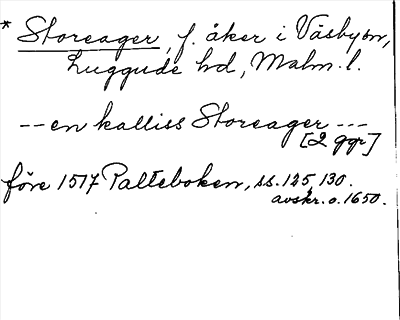 * Storeager, f. åker i Väsbyon,
Luggude hd, Malm. l.
-- en kalliss Storeager ---
[2 ggr]
före 1517 Palteboken, ss. 125, 130.
avskr. o. 1650.